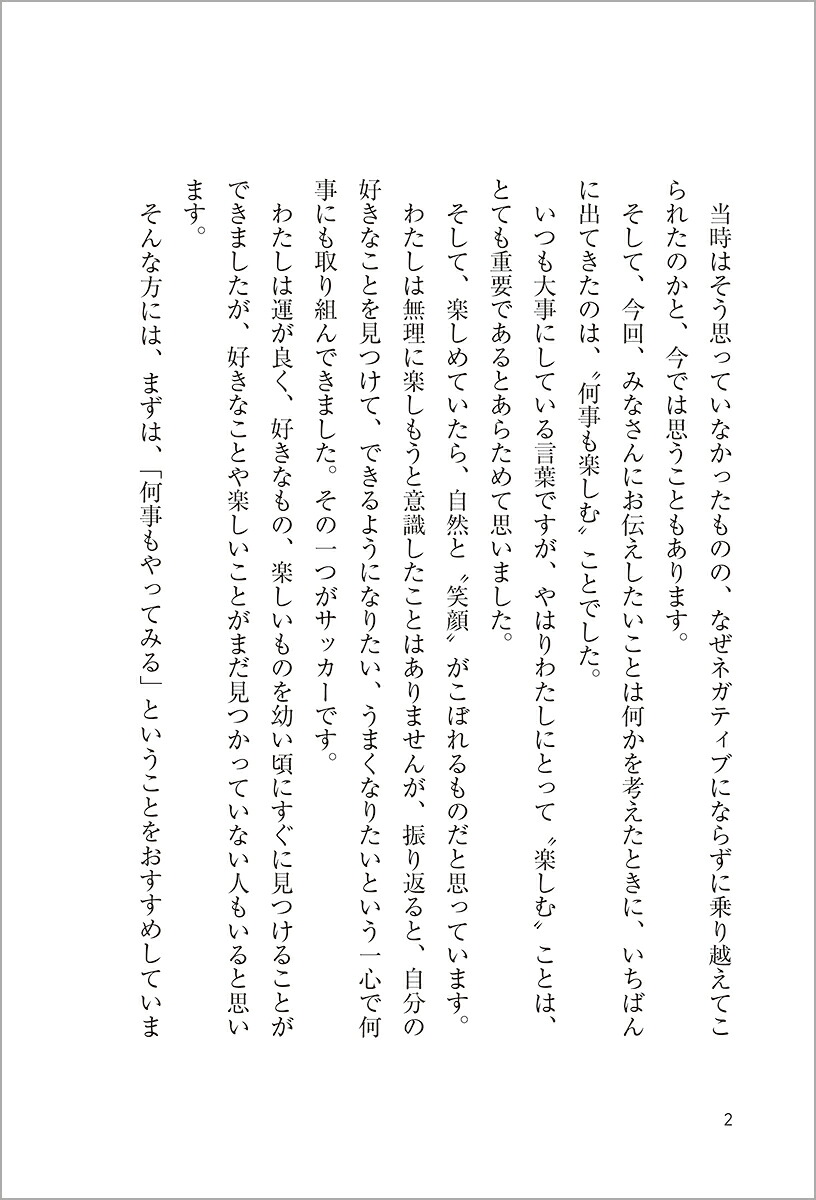 当時はそう思っていなかったものの、なぜネガティブにならずに乗り越えてこ
られたのかと、今では思うこともあります。
そして、今回、みなさんにお伝えしたいことは何かを考えたときに、いちばん
に出てきたのは、〝何事も楽しむ〟ことでした。
いつも大事にしている言葉ですが、やはりわたしにとって〝楽しむ〟ことは、
とても重要であるとあらためて思いました。
そして、楽しめていたら、自然と〝笑顔〟がこぼれるものだと思っています。
わたしは無理に楽しもうと意識したことはありませんが、振り返ると、自分の
好きなことを見つけて、できるようになりたい、うまくなりたいという一心で何
事にも取り組んできました。その一つがサッカーです。
わたしは運が良く、好きなもの、楽しいものを幼い頃にすぐに見つけることが
できましたが、好きなことや楽しいことがまだ見つかっていない人もいると思い
ます。
そんな方には、まずは、「何事もやってみる」ということをおすすめしていま
2